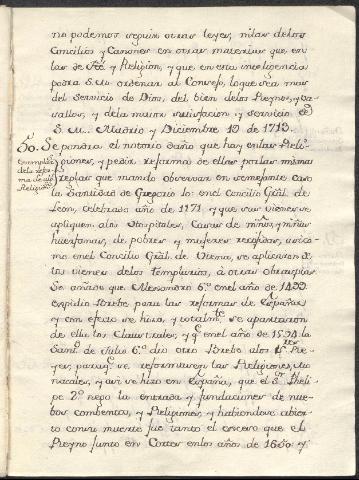 no podemos seguir otras leyes, ni las delos
Concilios y Canones en otras materias que en
las de Fée y Religion, y que en esta inteligencia
podra S. M. ordenar al Consejo, lo que sea mas
del servicio de Dios, del bien delos Reynos, y va-
sallos, y dela mayor satisfacion y servicio de
S. M. Madrid y Diciembre 19 de 1713.
50. Se pondra el notorio daño que hay en las Reli-
giones, y pedir reforma de ellas por las mismas
reglas que mando observar en semejante caso
la Santidad de Gregorio 10. en el Concilio Gral. de
Leon, celebrado año de 1271 y que sus vienes se
apliquen alos Hospitales, Casas de niños y niñas
huerfanas, de pobres y mujeres recojidas, asi co-
mo en el Concilio Gral. de Viena, se aplicaron de
los vienes delos Templarios, á otras obras pias
Se añade que Alexandro 6º en el año de 1499
expidio Brebe para las reformas de España
y con efecto se hizo, y totalmte. se apartaron
de ella los Claustrales, y q. en el año de 1534 la
Santd. de Julio 6º dio otro Brebe alos Sres. Re-
yes, para q. se reformasen las Religiones, Mo-
nacales, y asi se hizo en España, que el Sr. Pheli-
pe 2º nego la entrada y fundaciones de nue-
bos combentos, y Religiones, y habiendose abier-
to con su muerte fue tanto el exceso que el
Reyno junto en Cortes en los años de 1650 y